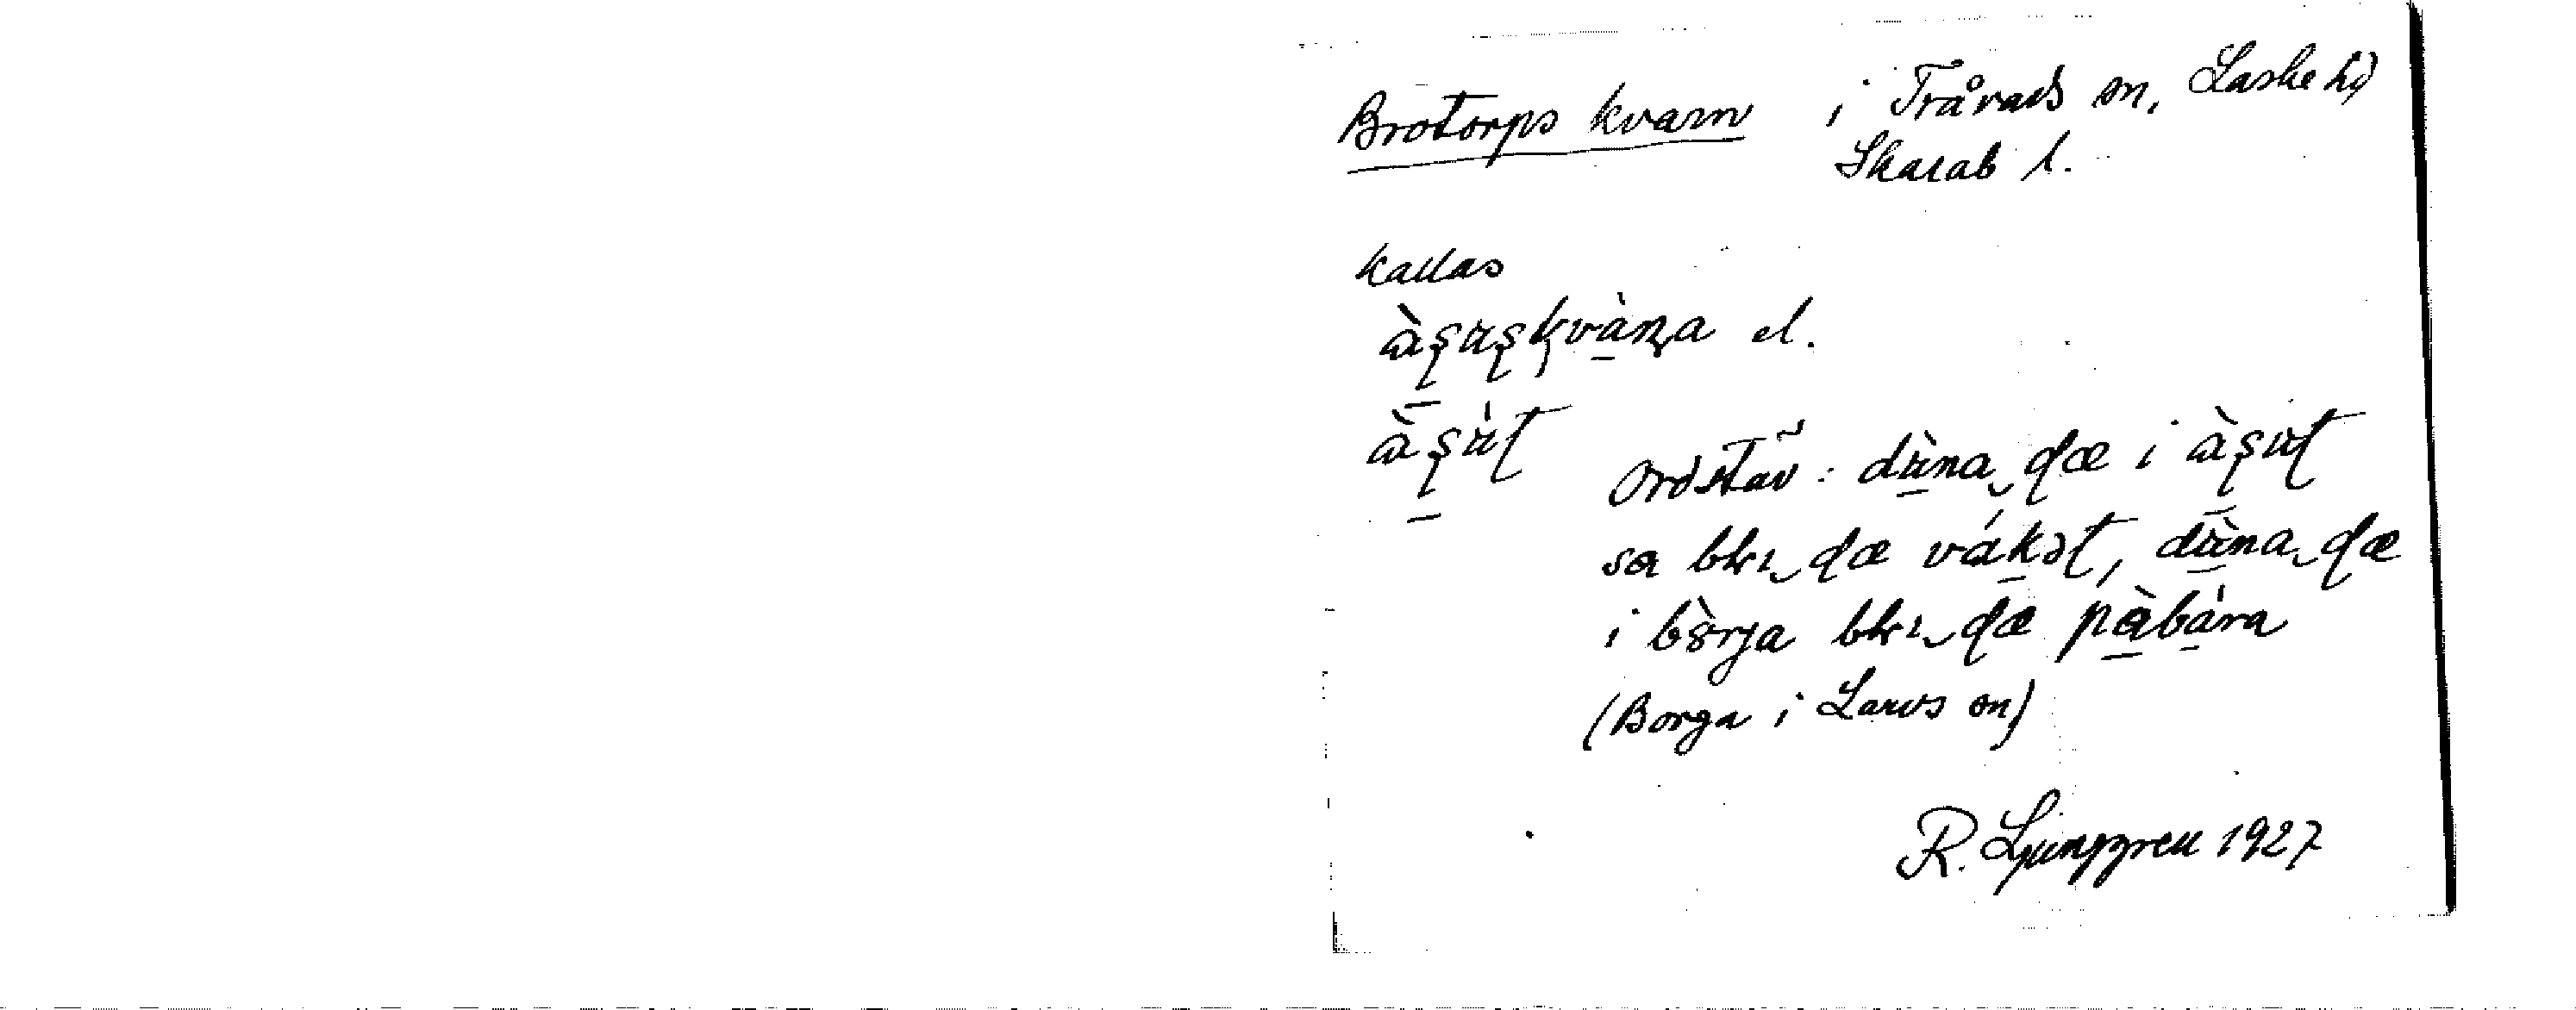 Brotorps kvarn i Tråvads sn, Laske hd
Skarab l.
kallas
àşuşkvàṇa el.
àşùt
Ordstäv: dùna dæ i àşut
sa blɪ dæ vákət, dùna dæ
i bòrja blɪ dæ pàbára
(Borga i Larvs sn)
R. Ljunggren 1927